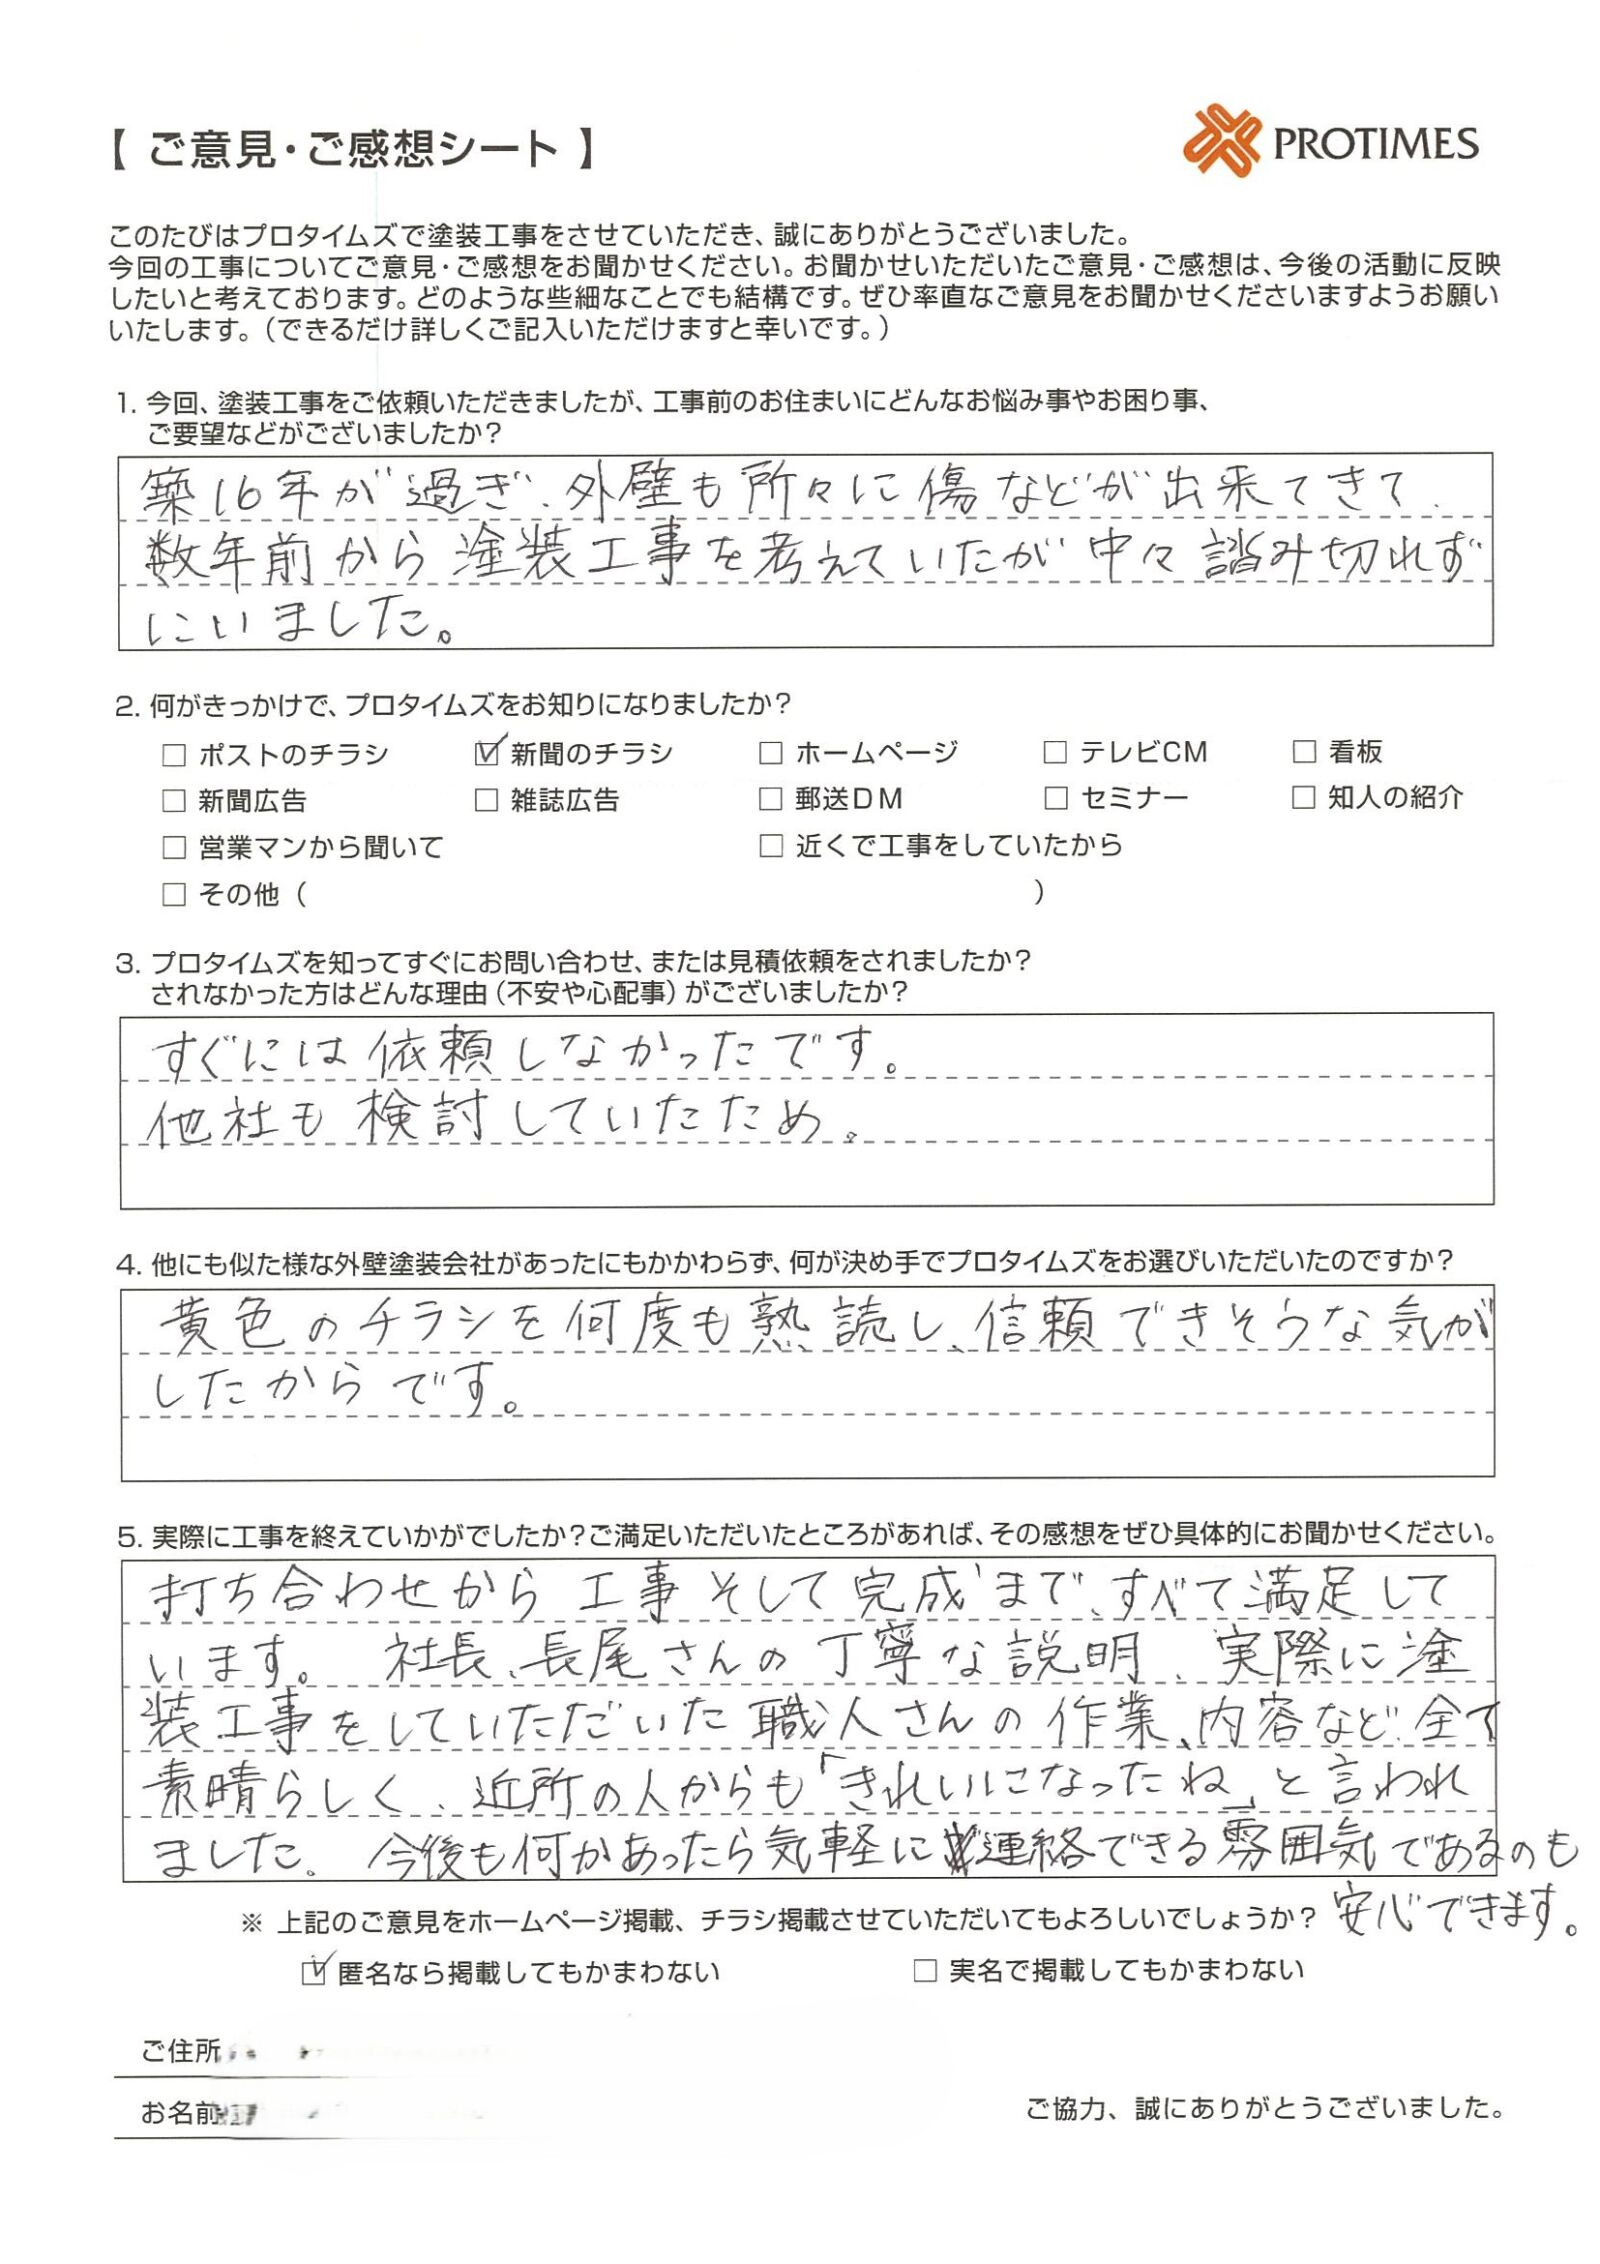 【 ご意見・ご感想シート 】
PROTIMES
このたびはプロタイムズで塗装工事をさせていただき、誠にありがとうございました。
今回の工事についてご意見・ご感想をお聞かせください。お聞かせいただいたご意見・ご感想は、今後の活動に反映
したいと考えております。どのような些細なことでも結構です。ぜひ率直なご意見をお聞かせくださいますようお願い
いたします。（できるだけ詳しくご記入いただけますと幸いです。）
1. 今回、塗装工事をご依頼いただきましたが、工事前のお住まいにどんなお悩み事やお困り事、
ご要望などがございましたか？
築16年が過ぎ、外壁も所々に傷などが出来てきて、
数年前から塗装工事を考えていたが中々踏み切れず
にいました。
2. 何がきっかけで、プロタイムズをお知りになりましたか？
□ ポストのチラシ ☑ 新聞のチラシ □ ホームページ □ テレビCM □ 看板
□ 新聞広告 □ 雑誌広告 □ 郵送DM □ セミナー □ 知人の紹介
□ 営業マンから聞いて □ 近くで工事をしていたから
□ その他（ ）
3. プロタイムズを知ってすぐにお問い合わせ、または見積依頼をされましたか？
されなかった方はどんな理由（不安や心配事）がございましたか？
すぐには依頼しなかったです。
他社も検討していたため。
4. 他にも似た様な外壁塗装会社があったにもかかわらず、何が決め手でプロタイムズをお選びいただいたのですか？
黄色のチラシを何度も熟読し、信頼できそうな気が
したからです。
5. 実際に工事を終えていかがでしたか？ご満足いただいたところがあれば、その感想をぜひ具体的にお聞かせください。
打ち合わせから工事そして完成まで、すべて満足して
います。 社長、長尾さんの丁寧な説明、実際に塗
装工事をしていただいた職人さんの作業、内容など、全て
素晴らしく、近所の人からも「きれいになったね」と言われ
ました。今後も何かあったら気軽に連絡できる雰囲気であるのも
安心できます。
※ 上記のご意見をホームページ掲載、チラシ掲載させていただいてもよろしいでしょうか？
☑ 匿名なら掲載してもかまわない □ 実名で掲載してもかまわない
ご住所
お名前
ご協力、誠にありがとうございました。